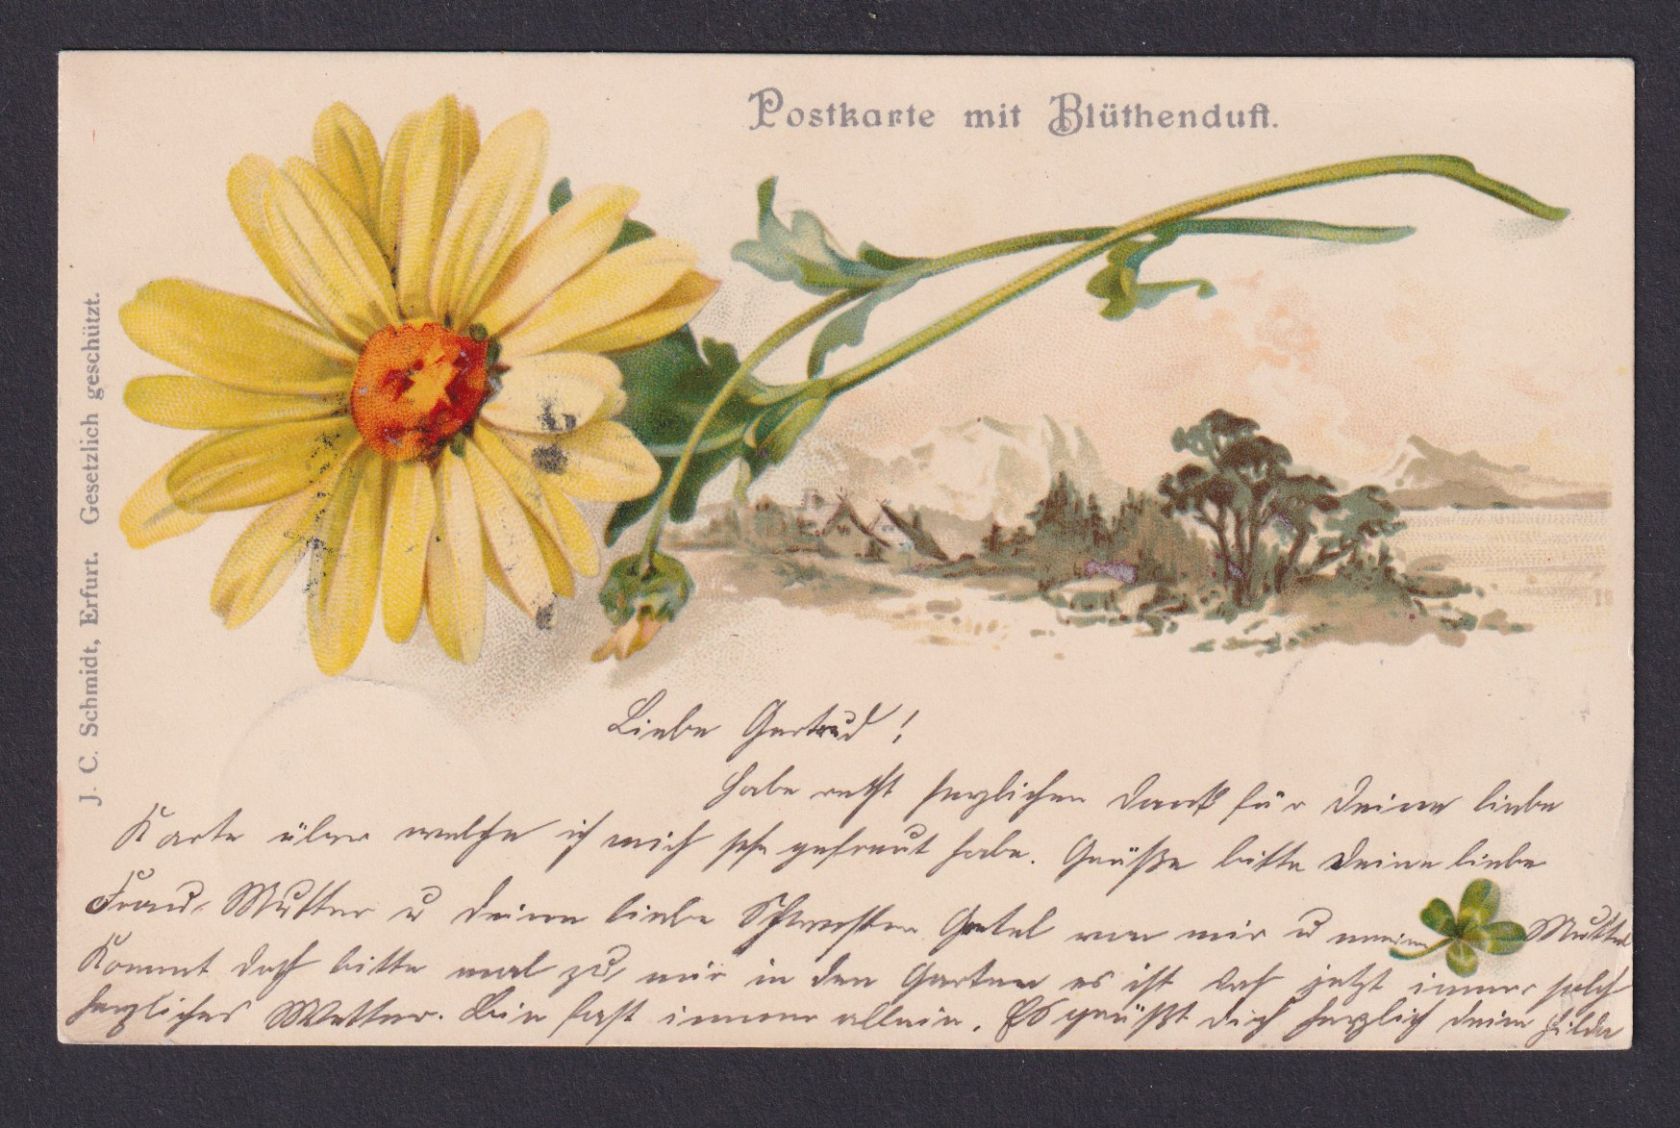 Postkarte mit Blüthenduft.
J. C. Schmidt, Erfurt. Gesetzlich geschützt.
Liebe Gertrud!
Habe recht herzlichen Dank für Deine liebe
Karte über welche ich mich sehr gefreut habe. Grüße bitte Deine liebe
Frau Mutter u Deine liebe Schwester Gretel von mir u meiner Mutter
Kommt doch bitte mal zu mir in den Garten es ist doch jetzt immer solch
herzliches Wetter. Bin fast immer allein. Es grüßt dich herzlich deine Hilde